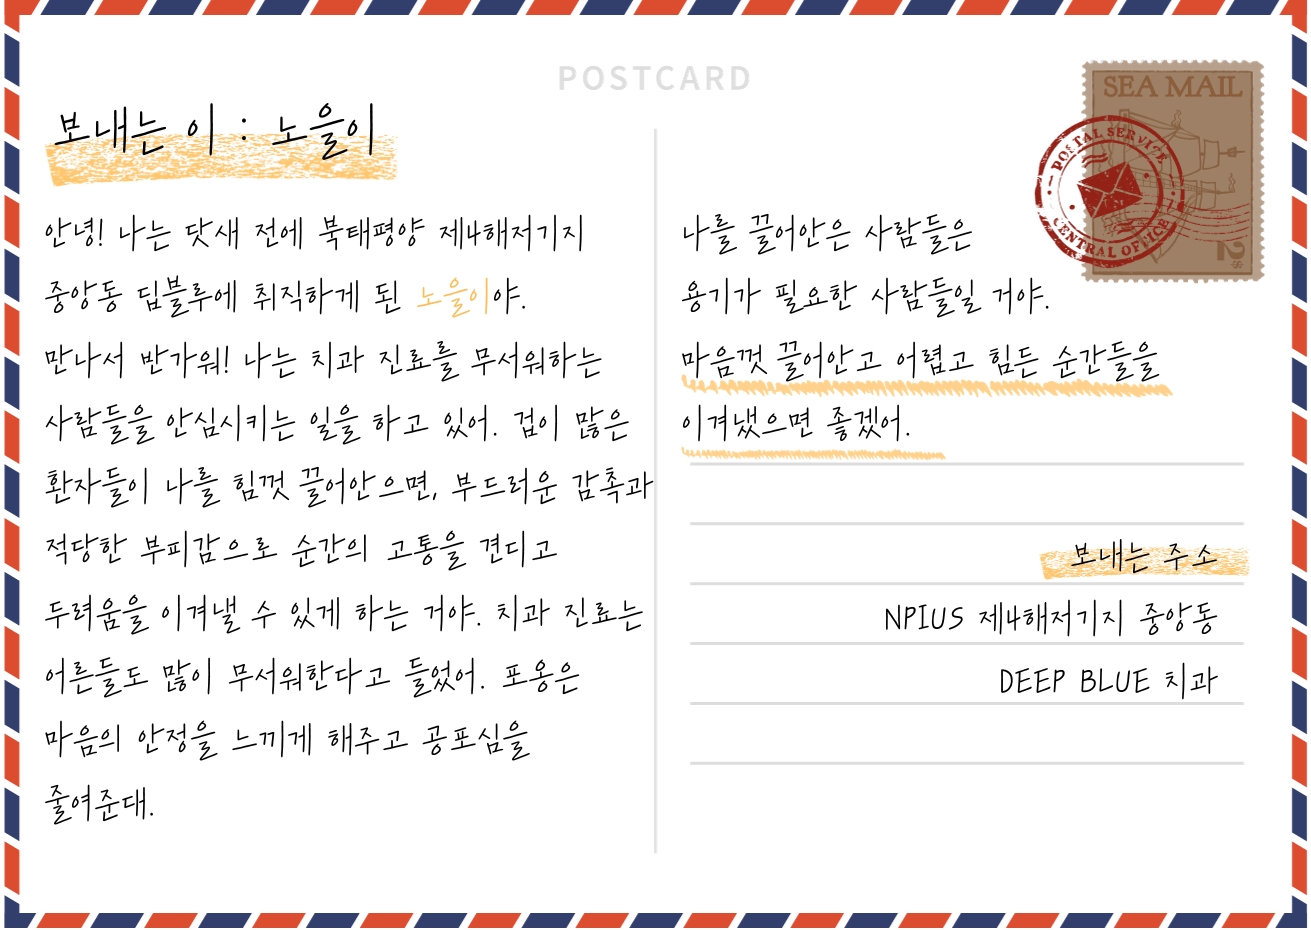 POSTCARD
SEA MAIL
POSTAL SERVICE
CENTRAL OFFICE
2
보내는 이 : 노을이
안녕! 나는 닷새 전에 북태평양 제4해저기지
중앙동 딥블루에 취직하게 된 노을이야.
만나서 반가워! 나는 치과 진료를 무서워하는
사람들을 안심시키는 일을 하고 있어. 겁이 많은
환자들이 나를 힘껏 끌어안으면, 부드러운 감촉과
적당한 부피감으로 순간의 고통을 견디고
두려움을 이겨낼 수 있게 하는 거야. 치과 진료는
어른들도 많이 무서워한다고 들었어. 포옹은
마음의 안정을 느끼게 해주고 공포심을
줄여준대.
나를 끌어안은 사람들은
용기가 필요한 사람들일 거야.
마음껏 끌어안고 어렵고 힘든 순간들을
이겨냈으면 좋겠어.
보내는 주소
NPIUS 제4해저기지 중앙동
DEEP BLUE 치과